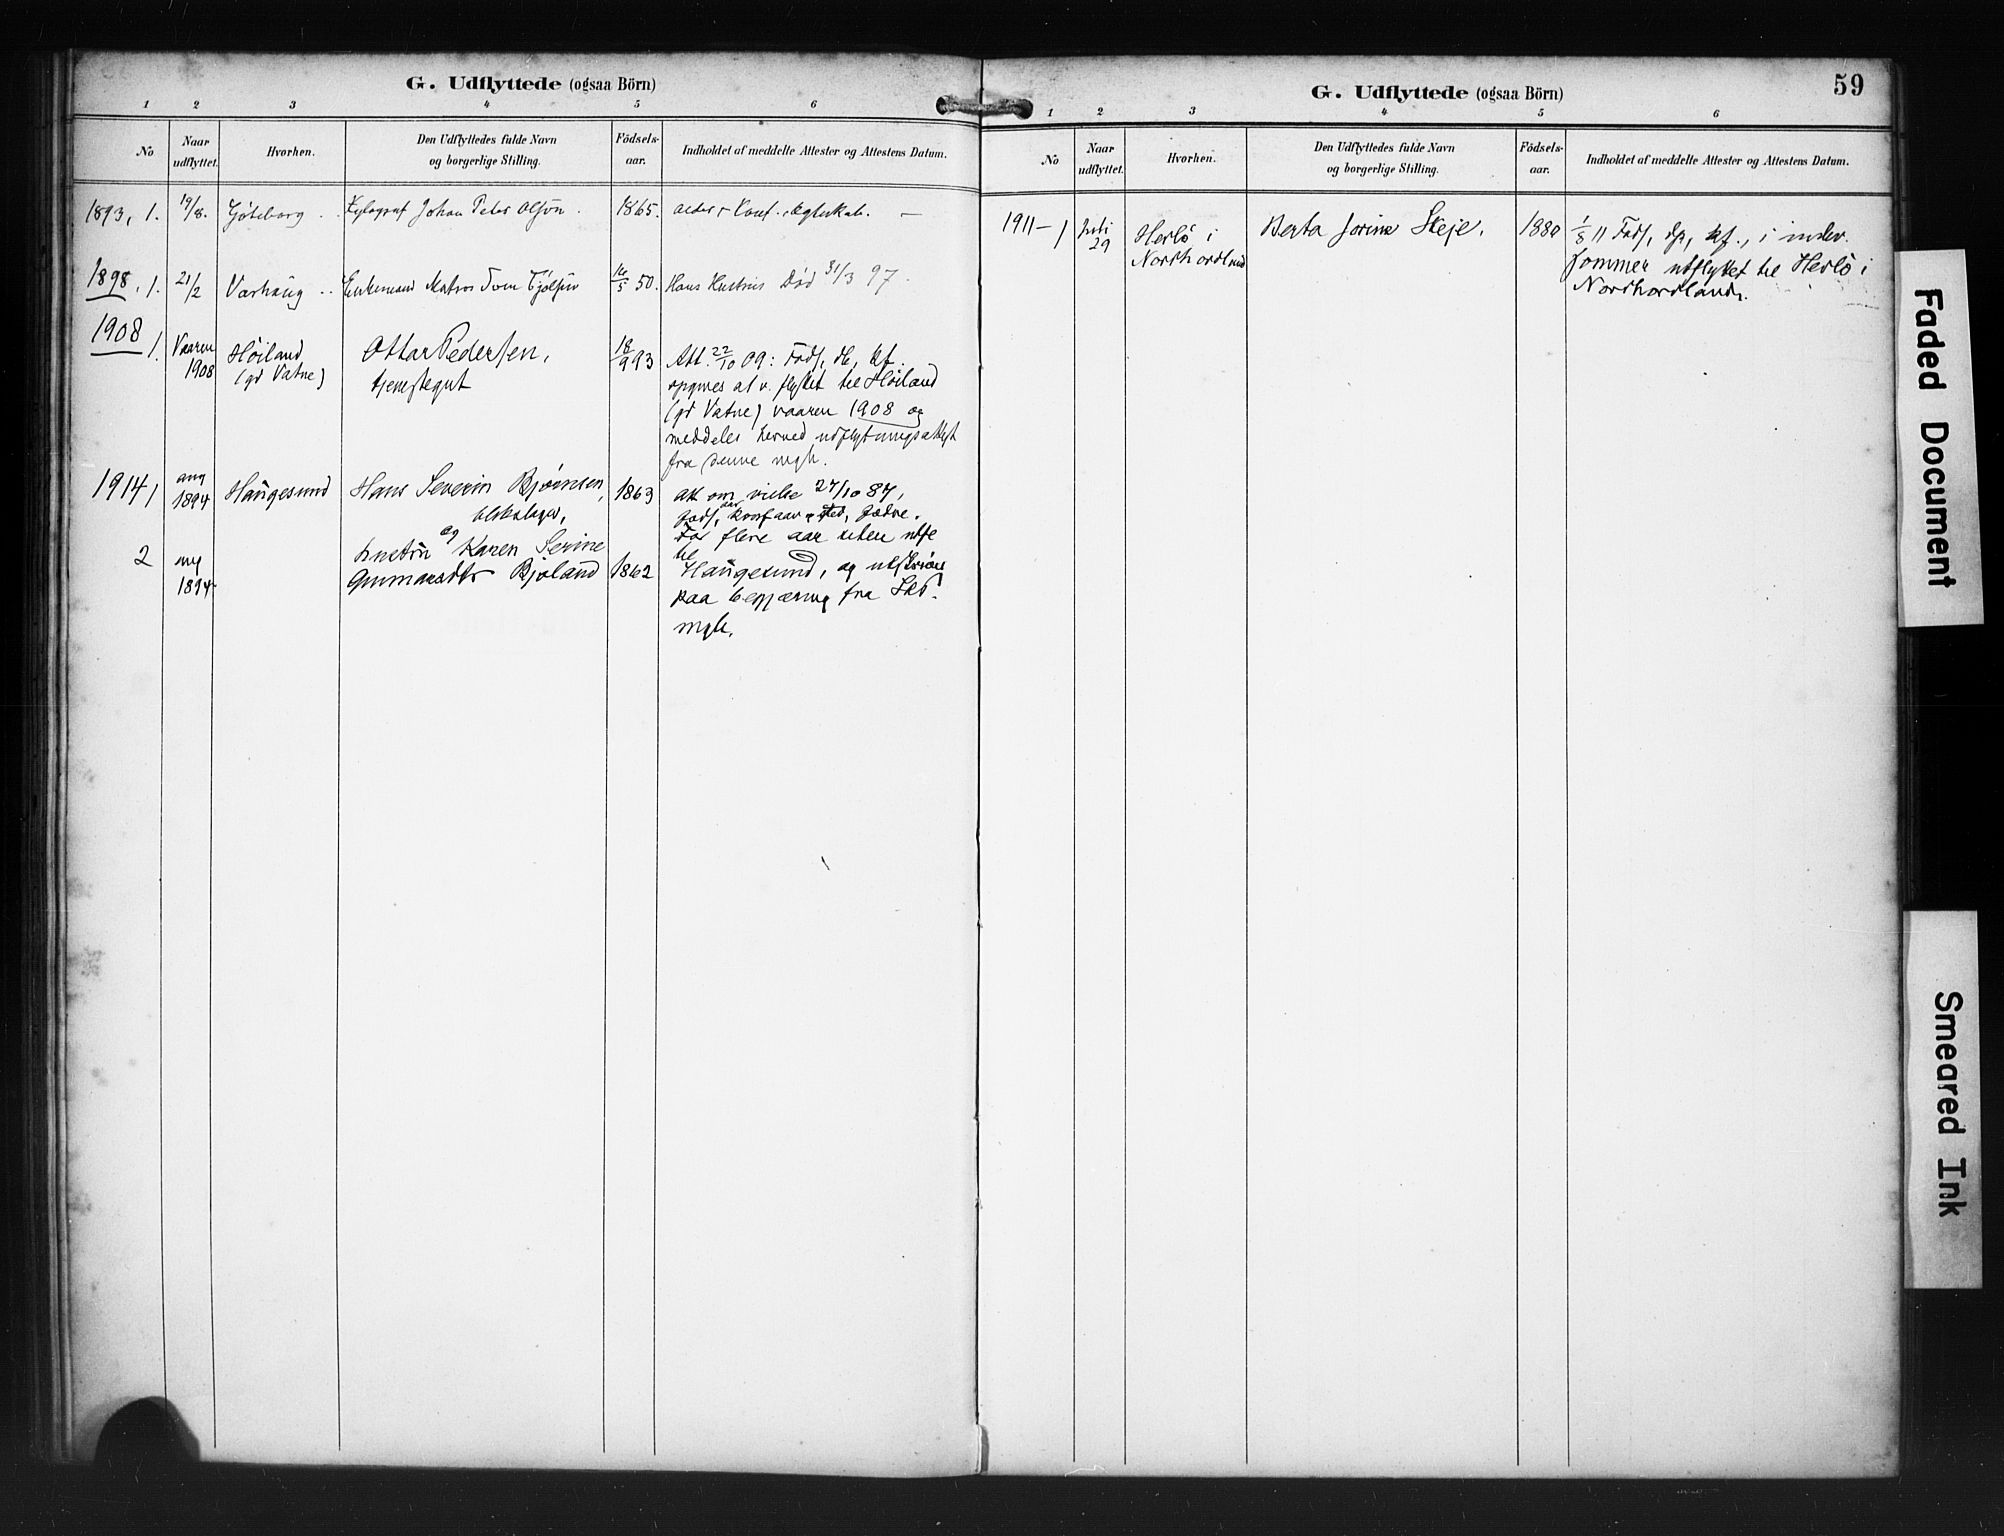 G. Udflyttede (ogsaa Börn)
1 2 3 4 5 6
No
Naar udflyttet.
Hvorhen.
Den Udflyttedes fulde Navn
og borgerlige Stilling.
Födsels-
aar.
Indholdet af meddelte Attester og Attestens Datum.
1893, 1. 19/8. Göteborg Xylograf Johan Peter Olsen. 1865.
1898, 1. 21/2 Varhaug Enkemand Matros Tom Tjølsen 16/5 50. Hans Hustrus Död 31/3 97.
1908
1. Vaaren 1908 Høiland (gd Vatne) Ottar Pedersen, tjenestegut 18/9 93 Att. 22/10 09: Föds, db, kf.
opgives at v. flyttet til Høiland
(gd Vatne) vaaren 1908 og
meddeles herved udflytningsattest
fra denne mgh.
1914 1 1894 Haugesund Hans Severin Bjørnsen, 1863 att om vielse 27/10 87,
føds,
For flere aar siden
til
2 1894 og
hustru Karen Serine
Gunnarsdtr Bjøland 1862 Haugesund, og
paa begjæring fra
mgh.
G. Udflyttede (ogsaa Börn) 59
1 2 3 4 5 6
No
Naar udflyttet.
Hvorhen.
Den Udflyttedes fulde Navn
og borgerlige Stilling.
Födsels-
aar.
Indholdet af meddelte Attester og Attestens Datum.
1911 – 1 Juli 29 Herlö i Nordhordland Berta Jorine Skeje. 1880 1/8 11 Föds, dp, kf., i
sommer utflyttet til Herlö i
Nordhordland.
Faded Document
Smeared Ink